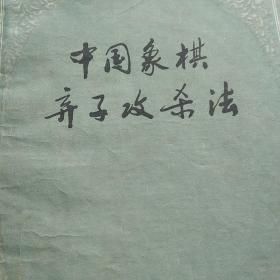 中国象棋
弃子攻杀法